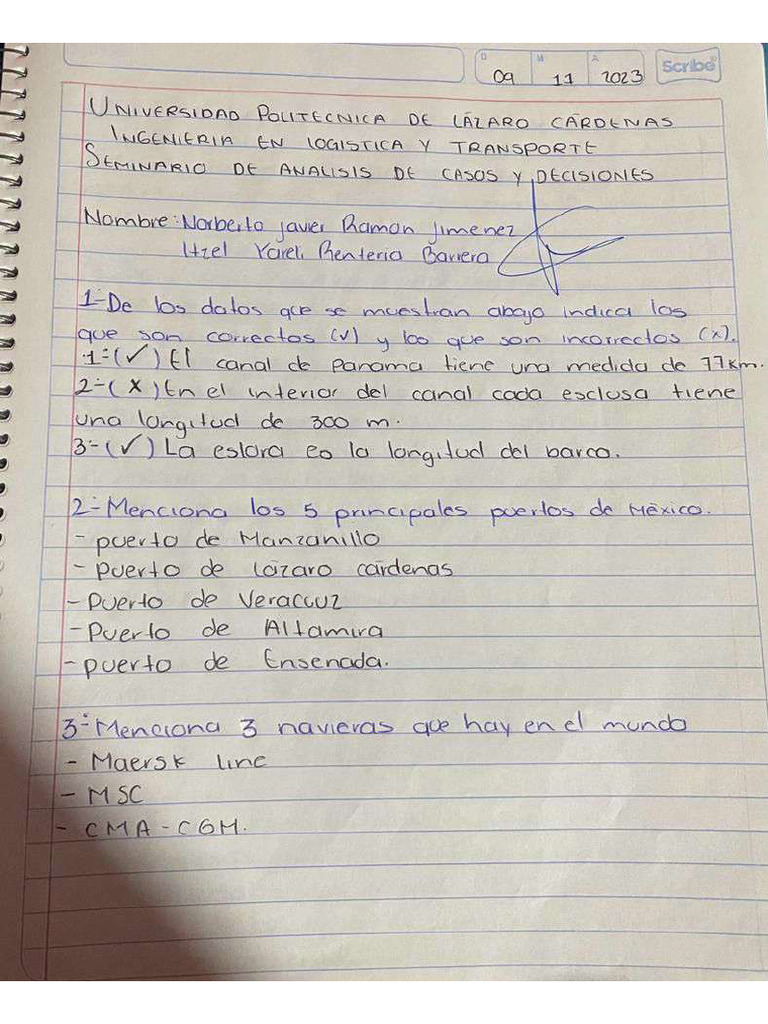 D M A
09 11 2023 Scribe
UNIVERSIDAD POLITECNICA DE LÁZARO CÁRDENAS
INGENIERIA EN LOGISTICA Y TRANSPORTE
SEMINARIO DE ANALISIS DE CASOS Y DECISIONES
Nombre: Norberto Javier Ramon Jimenez
Itzel Yareli Renteria Barrera
1-De los datos que se muestran abajo indica los
que son correctos (✓) y los que son incorrectos (x).
1-(✓) El canal de panama tiene una medida de 77km.
2-(X) En el interior del canal cada esclusa tiene
una longitud de 300 m.
3-(✓) La eslora es la longitud del barco.
2-Menciona los 5 principales puertos de México.
- puerto de Manzanillo
- Puerto de Lázaro cárdenas
- Puerto de Veracruz
- Puerto de Altamira
- puerto de Ensenada.
3-Menciona 3 navieras que hay en el mundo
- Maersk line
- MSC
- CMA-CGM.